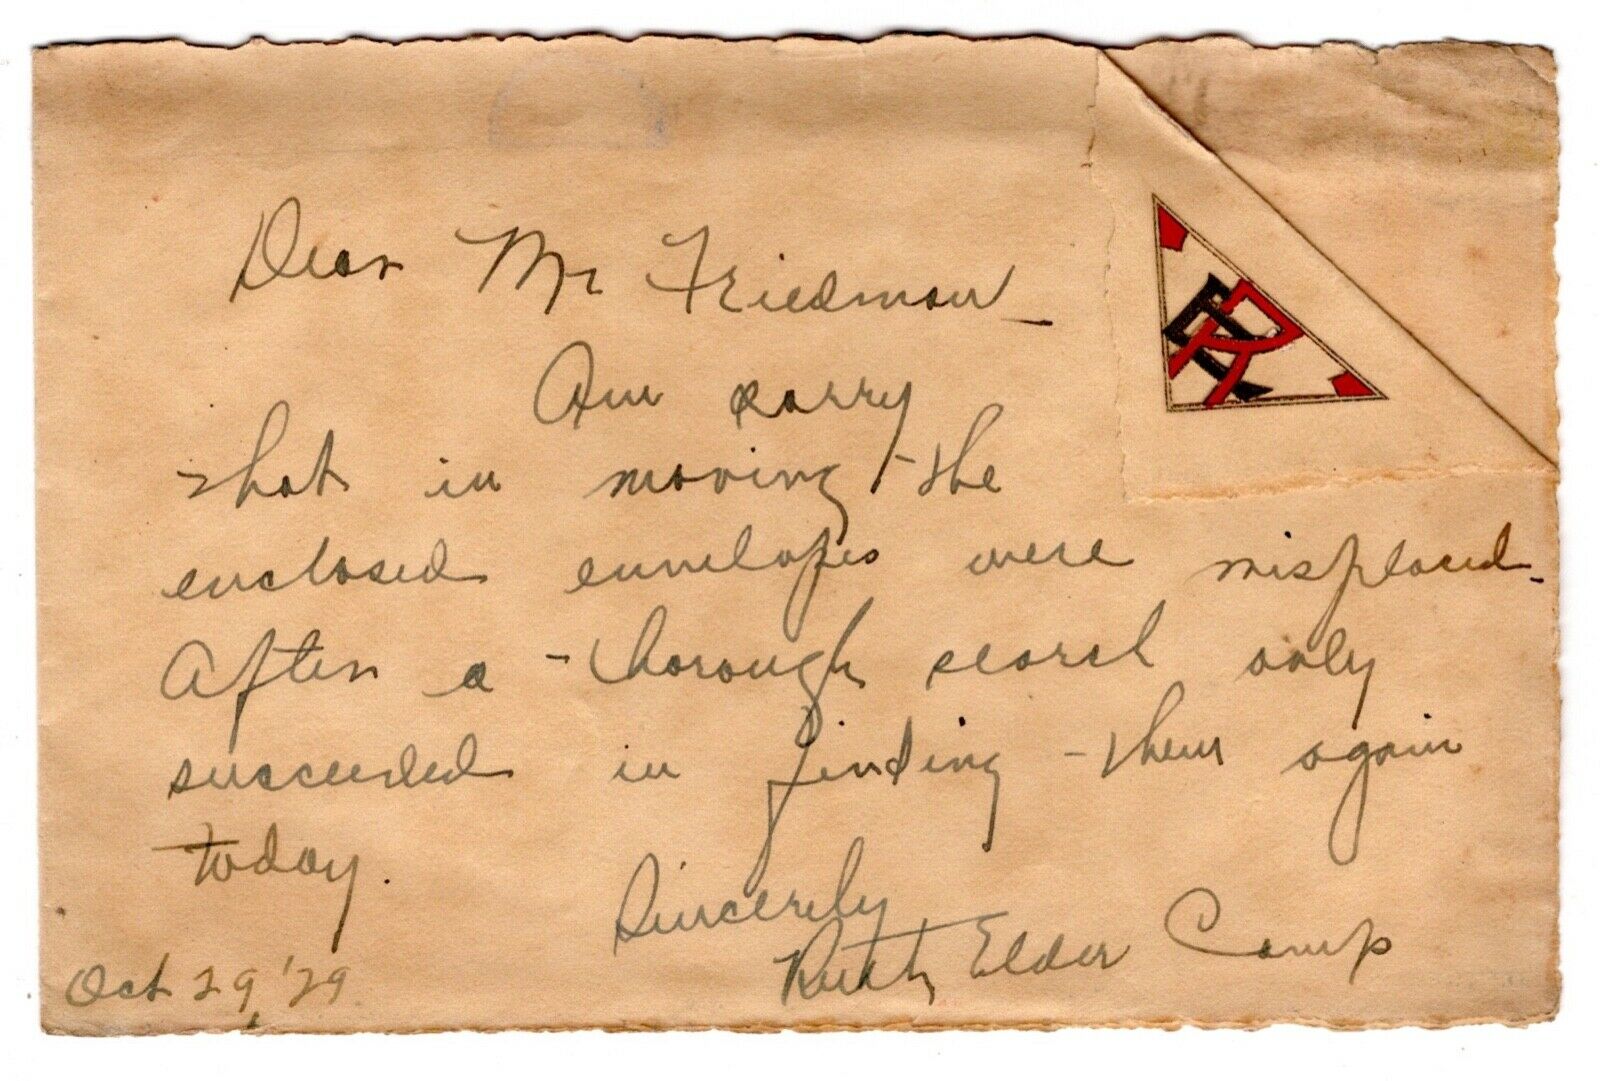 Dear Mr Friedman
Am sorry
that in moving the
enclosed envelopes were misplaced.
After a thorough search only
succeeded in finding them again
today.
Sincerely
Ruth Elder Camp
Oct 29, '29